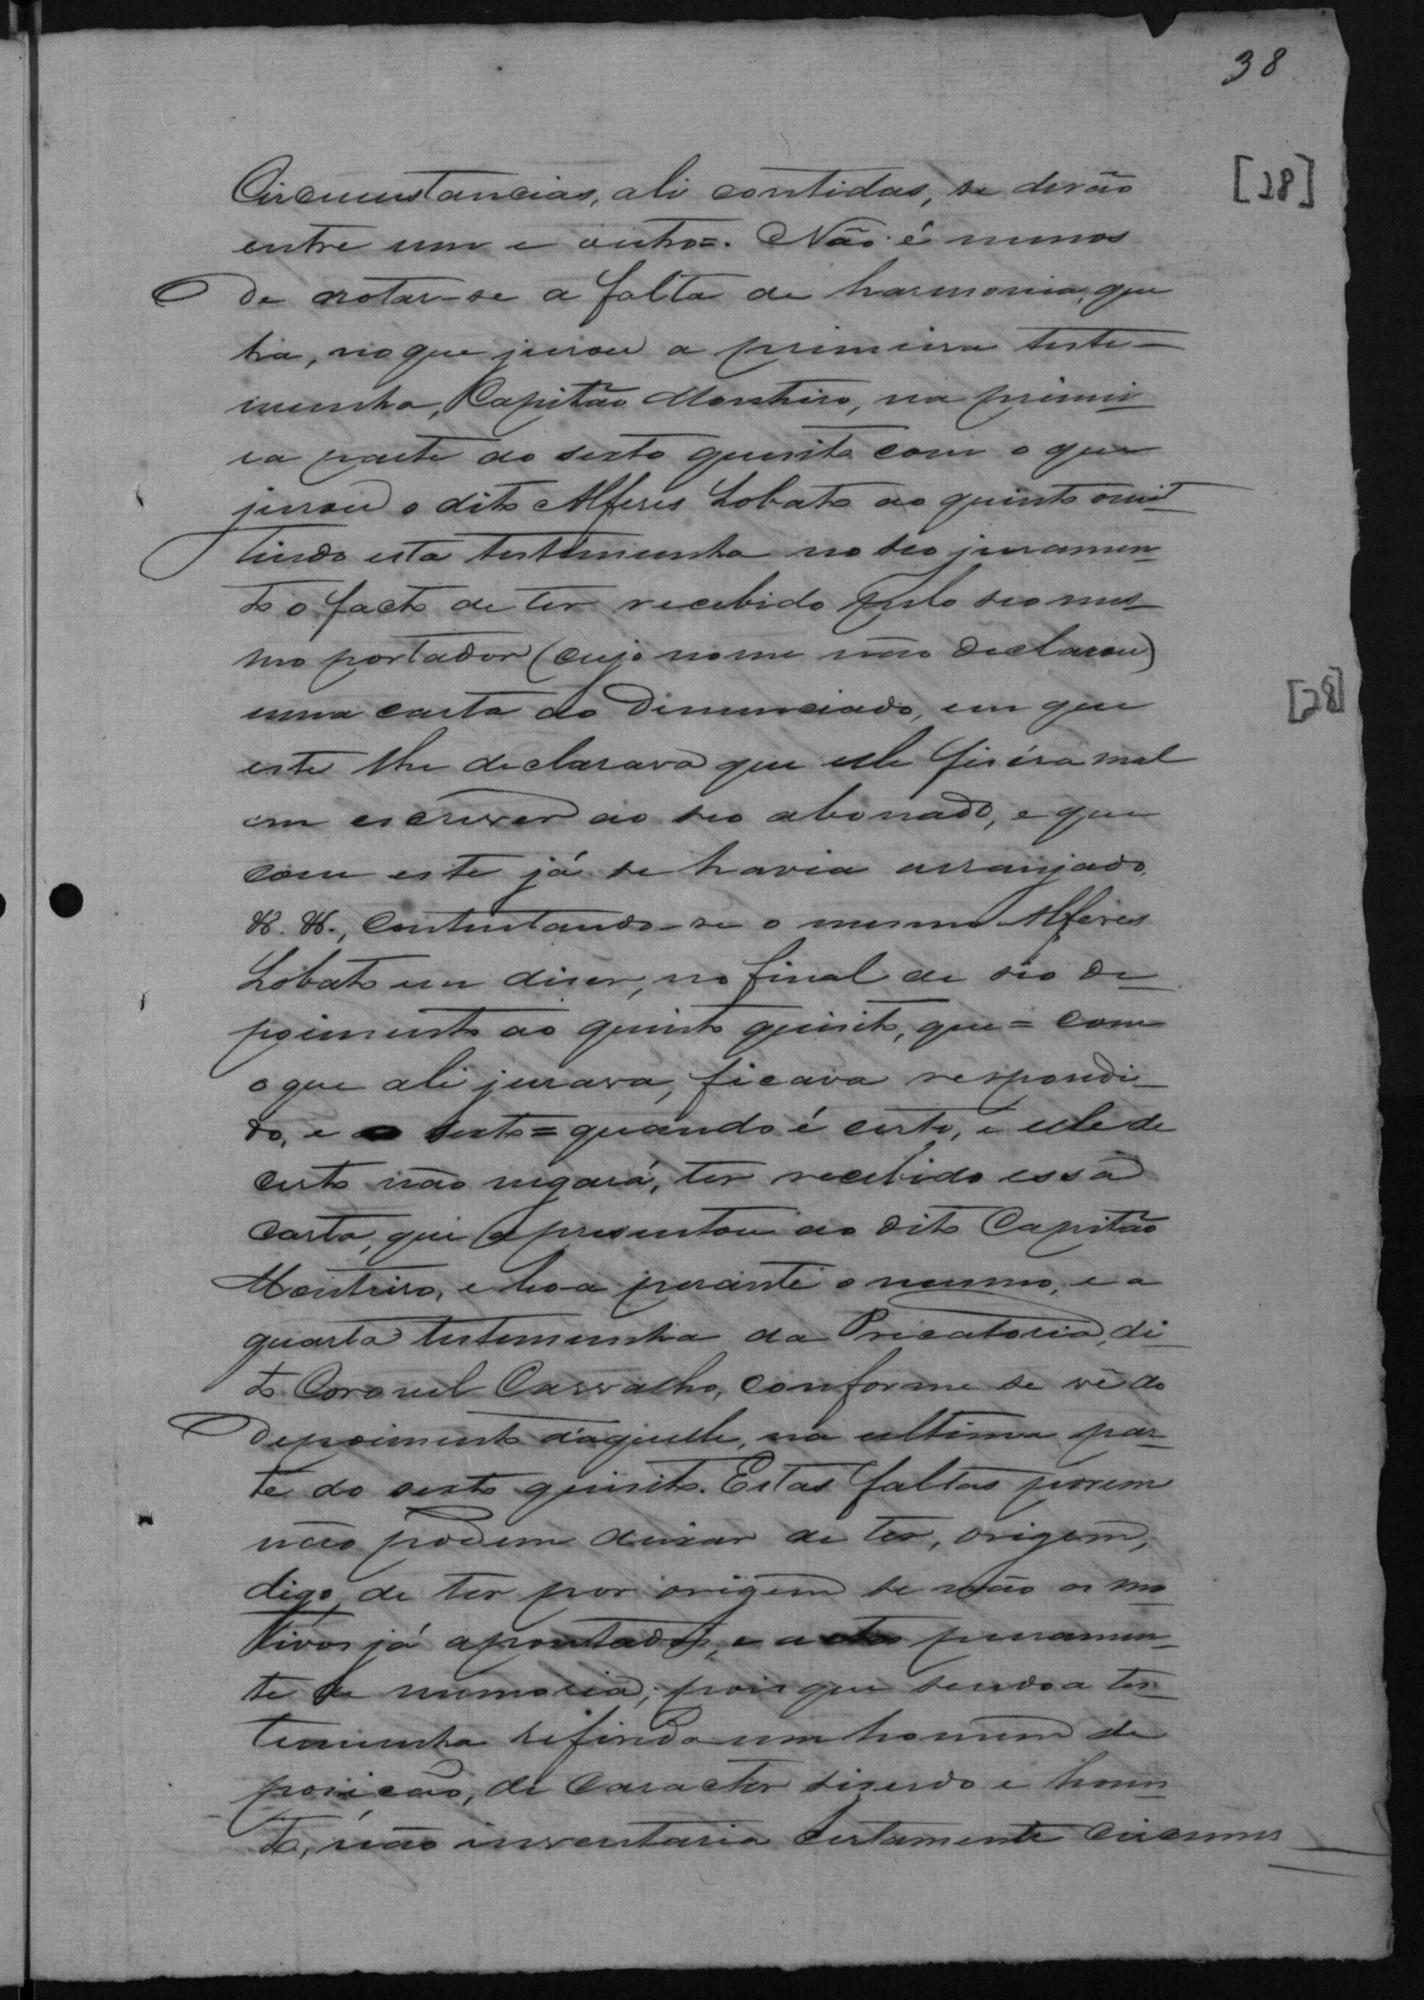 38
[28]
Circunstancias, ali contidas, se derão
entre um e outro=. Não é menos
de notar-se a falta de harmonia, que
ha, no que jurou a primeira teste-
munha, Capitão Monteiro, na primei-
ra parte do sexto quesito com o que
jurou o dito Alferes Lobato ao quinto omit-
tindo esta testemunha no seo juramen-
to o facto de ter recebido pelo seo mes-
mo portador (cujo nome não declarou)
[28]
uma carta do Denunciado, em que
este lhe declarava que elle fiséra mal
em escrever ao seo abonado, e que
com este já se havia arranjado,
&. &., contentando-se o mesmo Alferes
Lobato em diser, no final de seo de-
poimento ao quinto quesito, que = com
o que ali jurava, ficava respondi-
do, e o sexto = quando é certo, e elle de
certo não negará, ter recebido essa
carta, que apresentou ao dito Capitão
Monteiro, e leo-a perante o mesmo, e a
quarta testemunha da Precatoria, di-
to Coronel Carvalho, conforme se vê do
depoimento d'aquelle, na ultima par-
te do sexto quesito. Estas faltas porem
não podem deixar de ter, origem,
digo, de ter por origem se não os mo-
tivos já apontados, e puramen-
te de memoria; pois que sendo a tes-
temunha referida um homem de
posição, de caracter siserdo e hones-
to, não inventaria certamente circuns